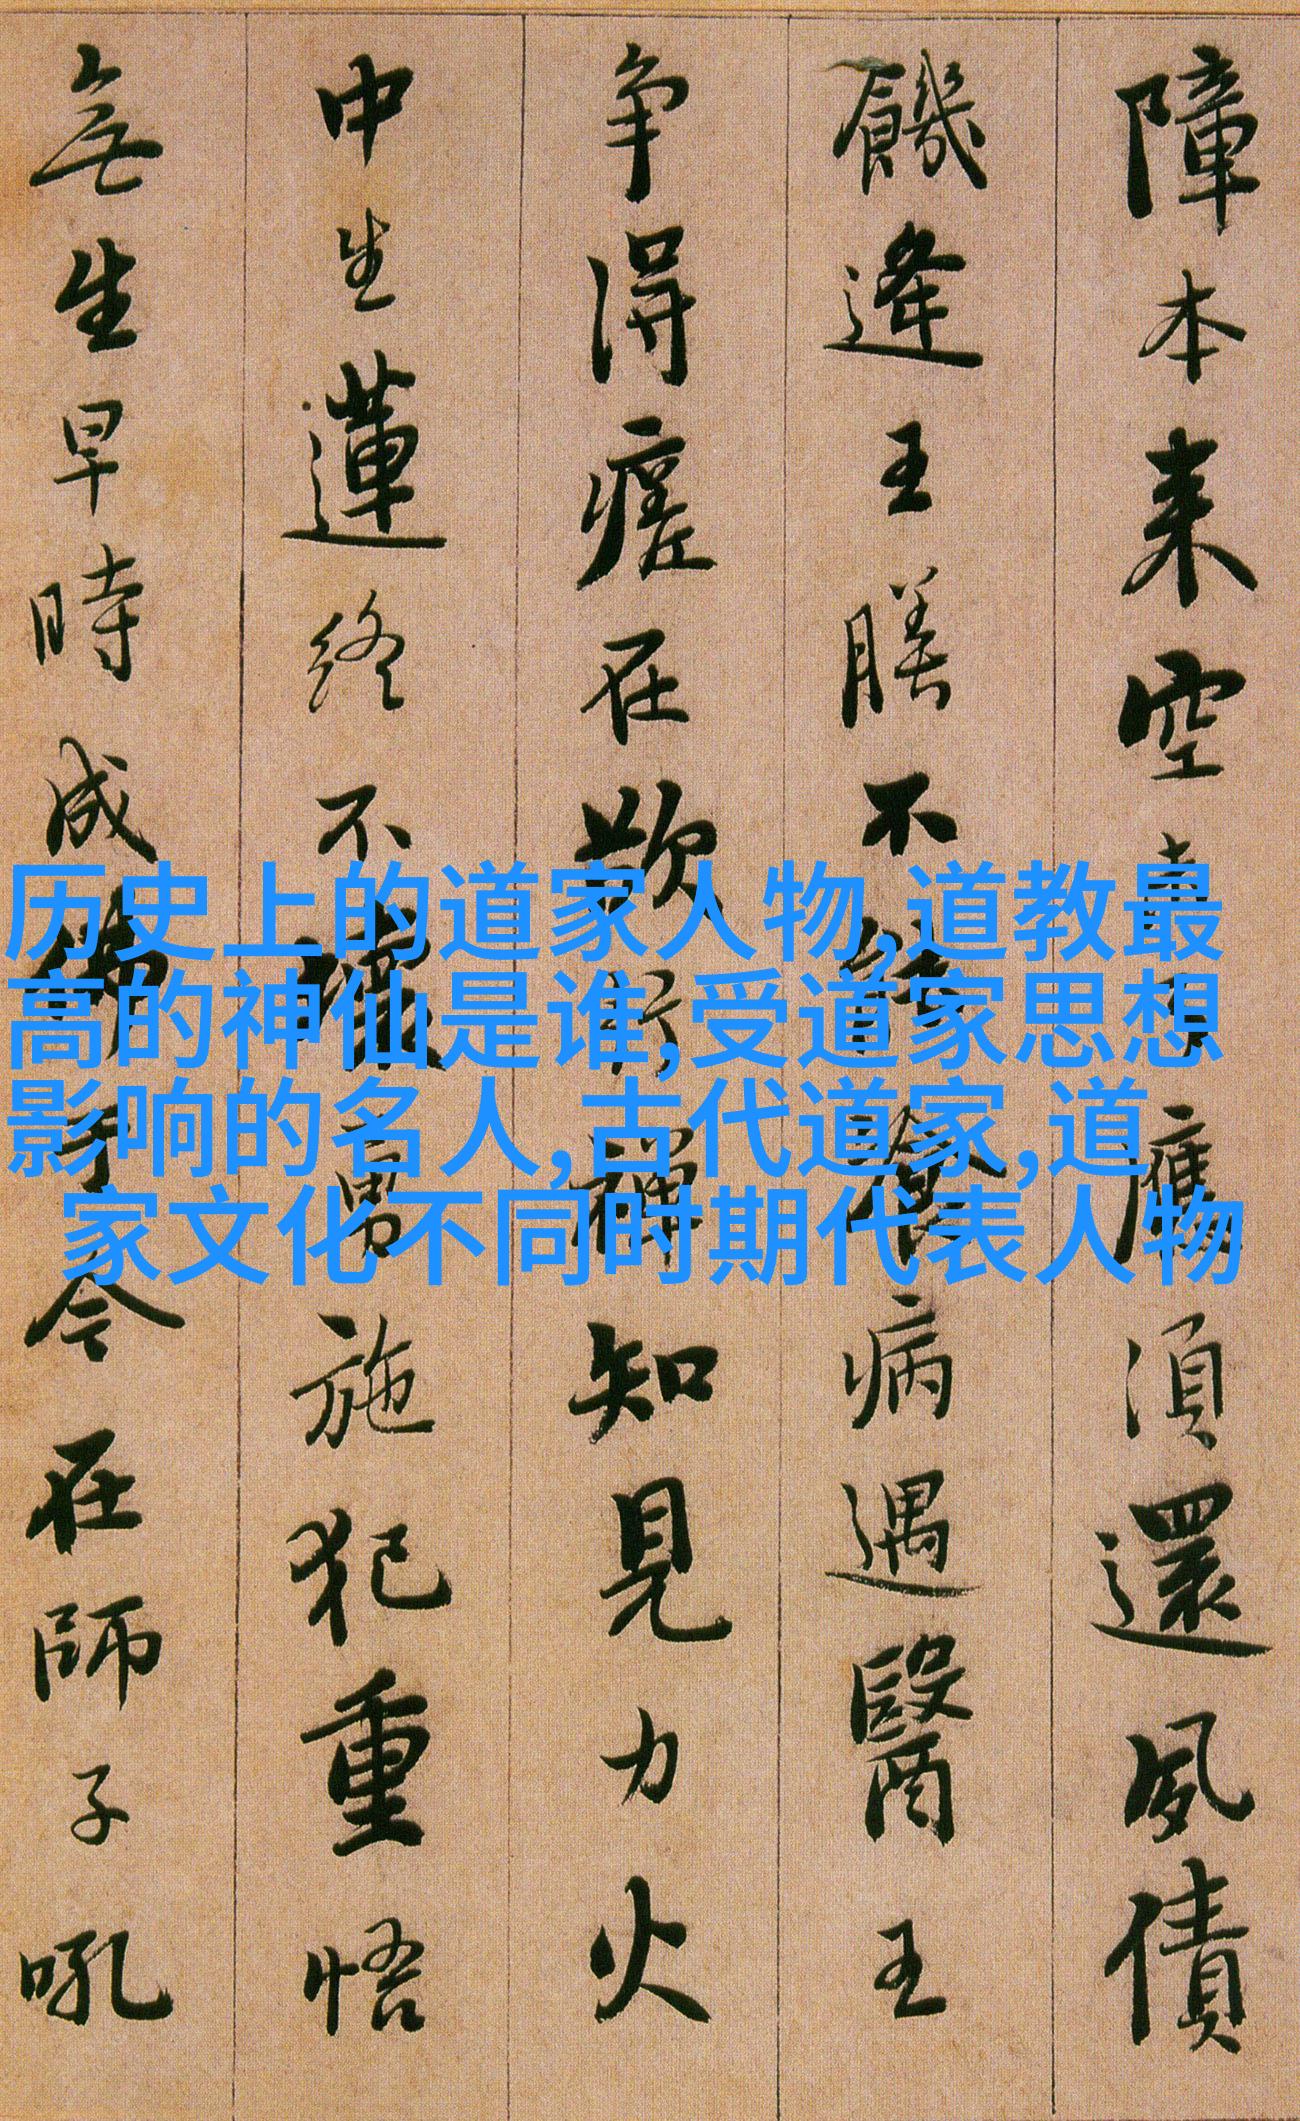 障本来空應須還夙債
饑逢王膳不能病遇醫王
争得瘥在欲行禪知見力火
中生蓮終不壞勇施犯重悟
無生早時成佛于今在師子吼
历史上的道家人物,道教最
高的神仙是谁,受道家思想
影响的名人,古代道家,道
家文化不同时期代表人物